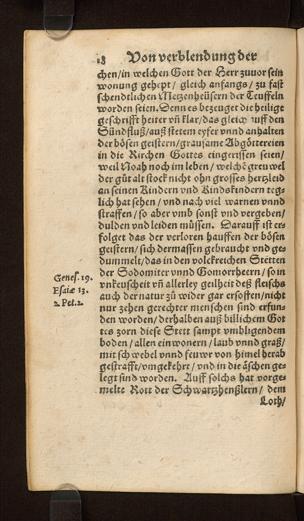 18 Von verblendung der
chen/in welchen Gott der Herr zuuor sein
wonung gehept/ gleich anfangs/ zu fast
schendtlichen Metzenheüsern der Teuffeln
worden seien. Denn es bezeuget die heilige
geschrifft heiter vñ klar/ das gleich auff den
Sündfluß/ auß stetem eyfer vnnd anhalten
der bösen geistern/ grausame Abgöttereien
in die Kirchen Gottes eingerissen seien/
weil Noah noch im leben/ welchē treuwel
der güt alt stock nicht ohn grosses hertzleid
an seinen Kindern vnd Kindskindern teg-
lich hat sehen/ vnd nach viel warnen vnnd
straffen/ so aber vmb sonst vnd vergeben/
dulden vnd leiden müssen. Darauff ist er-
folget das der verloren hauffen der bösen
geistern/ sich dermassen gebraucht vnd ge-
dummelt/ das in den volckreichen Stetten
der Sodomiter vnnd Gomorrheern/ so in
vnkeuscheit vñ allerley geilheit deß fleischs
auch der natur zů wider gar ersoffen/ nicht
nur zehen gerechter menschen sind erfun-
den worden/ derhalben auß billichem Got
tes zorn diese Stett sampt vmbligendem
boden/ allen einwonern/ laub vnnd graß/
mit schwebel vnnd feuwr von himel herab
gestrafft/ vmgekehrt/ vnd in die äschen ge-
legt sind worden. Auff solchs hat vorge-
melte Rott der Schwartzhenßlern/ dem
Loth/
Genes. 19.
Esaiæ 13.
2. Pet. 2.